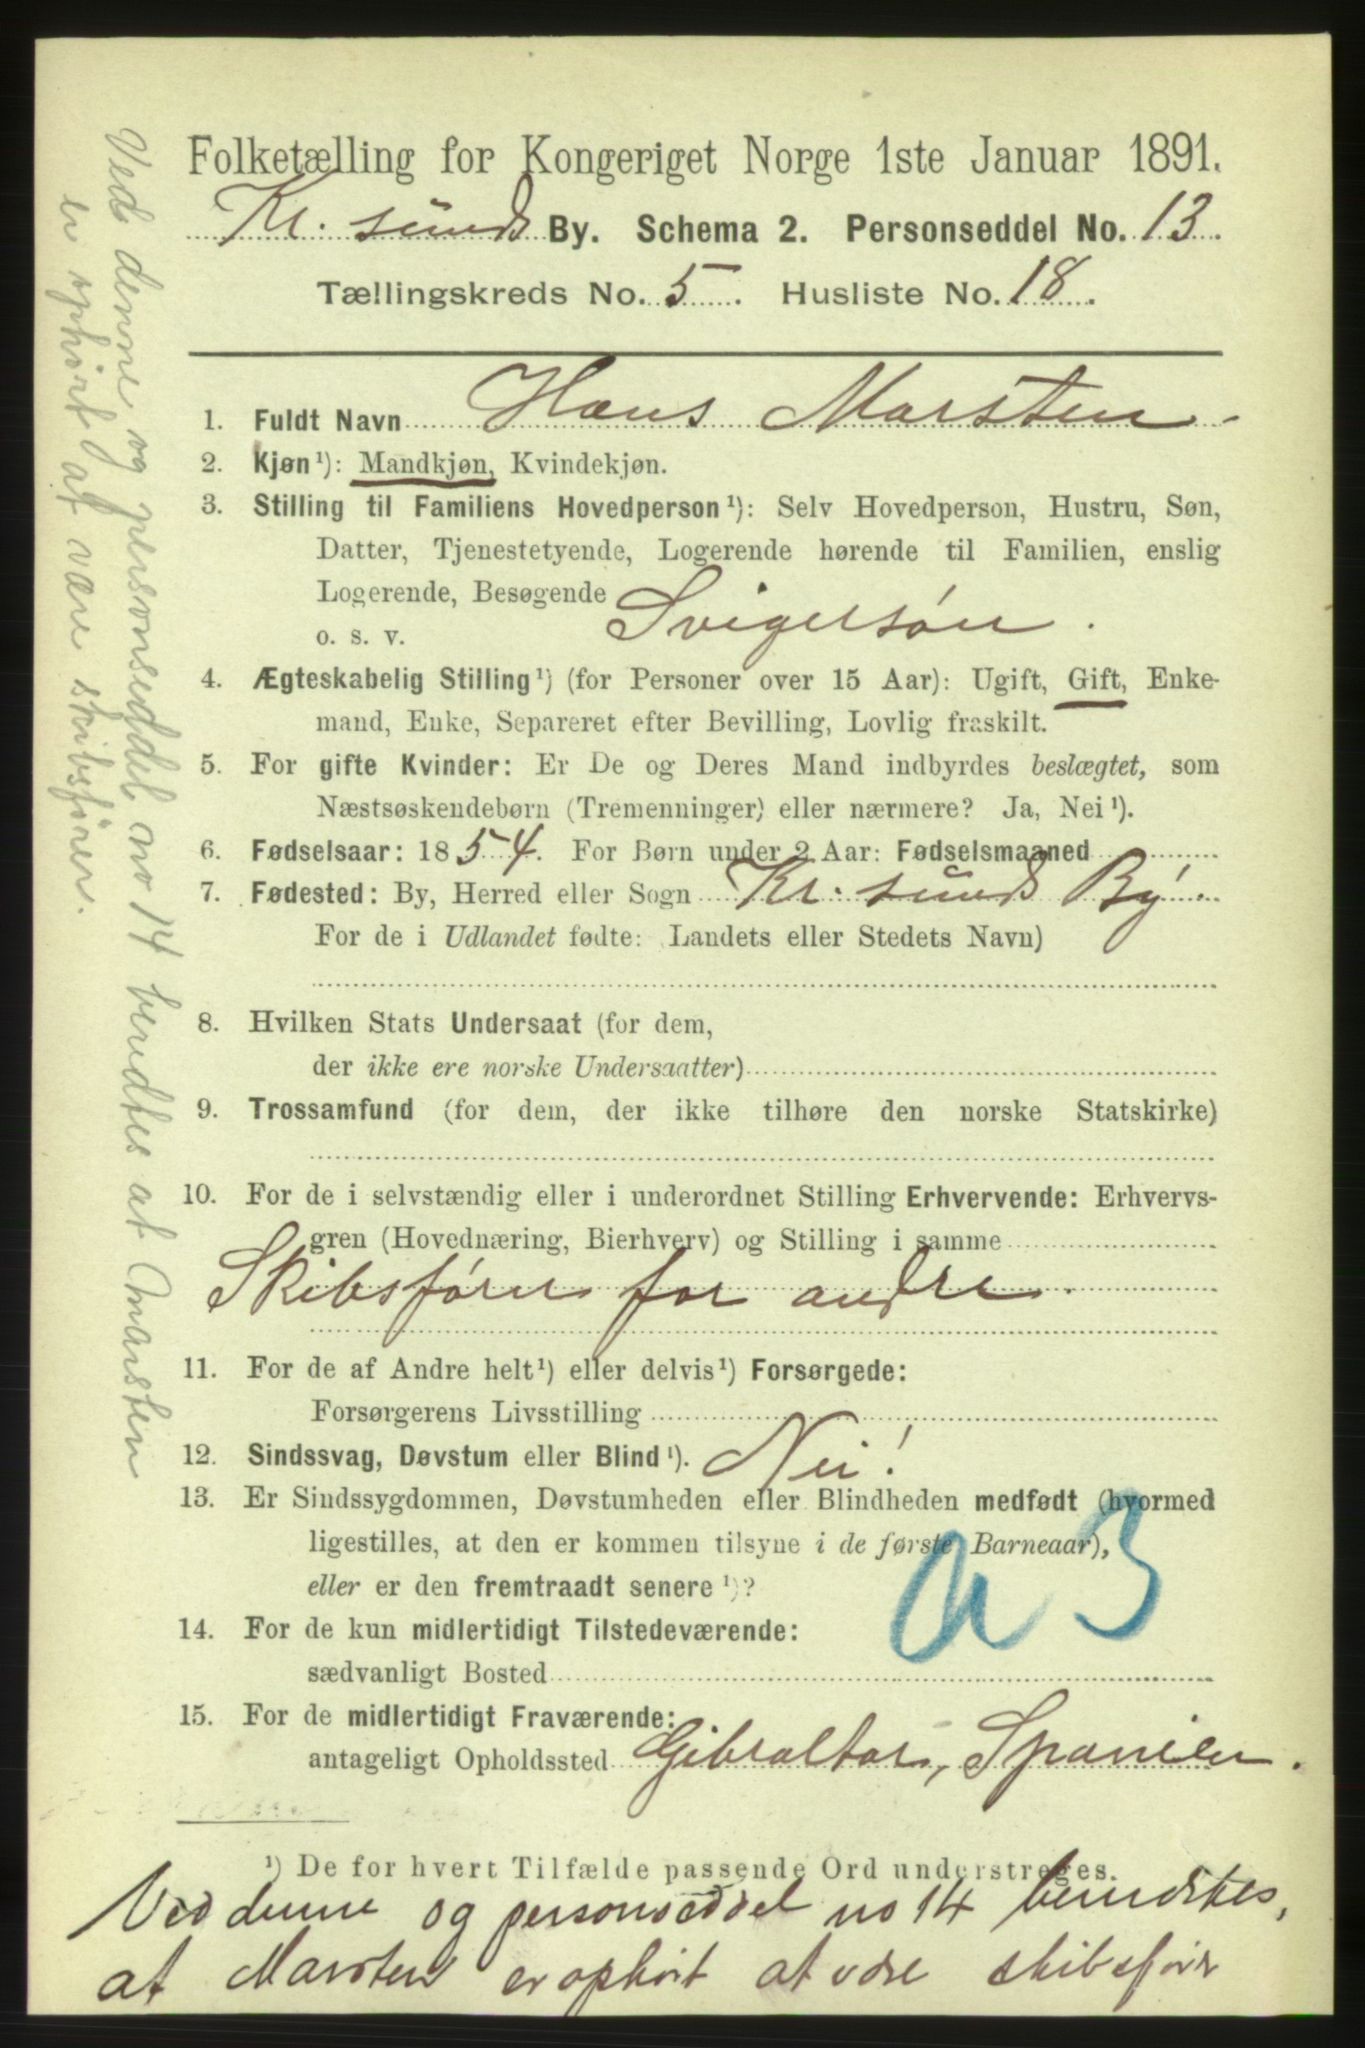 Folketælling for Kongeriget Norge 1ste Januar 1891.
Kr. sunds By. Schema 2. Personseddel No. 13.
Tællingskreds No. 5. Husliste No. 18.
1. Fuldt Navn Hans Marsten
2. Kjøn¹): Mandkjøn, Kvindekjøn.
3. Stilling til Familiens Hovedperson¹): Selv Hovedperson, Hustru, Søn,
Datter, Tjenestetyende, Logerende hørende til Familien, enslig
Logerende, Besøgende
o. s. v. Svigersøn.
4. Ægteskabelig Stilling¹) (for Personer over 15 Aar): Ugift, Gift, Enke-
mand, Enke, Separeret efter Bevilling, Lovlig fraskilt.
5. For gifte Kvinder: Er De og Deres Mand indbyrdes beslægtet, som
Næstsøskendebørn (Tremenninger) eller nærmere? Ja, Nei¹).
6. Fødselsaar: 1854. For Børn under 2 Aar: Fødselsmaaned
7. Fødested: By, Herred eller Sogn Kr. sunds By.
For de i Udlandet fødte: Landets eller Stedets Navn)
8. Hvilken Stats Undersaat (for dem,
der ikke ere norske Undersaatter)
9. Trossamfund (for dem, der ikke tilhøre den norske Statskirke)
10. For de i selvstændig eller i underordnet Stilling Erhvervende: Erhvervs-
gren (Hovednæring, Bierhverv) og Stilling i samme
Skibsfører for andre.
11. For de af Andre helt¹) eller delvis¹) Forsørgede:
Forsørgerens Livsstilling
12. Sindssvag, Døvstum eller Blind¹). Nei!
13. Er Sindssygdommen, Døvstumheden eller Blindheden medfødt (hvormed
ligestilles, at den er kommen tilsyne i de første Barneaar),
eller er den fremtraadt senere¹)?
a 3
14. For de kun midlertidigt Tilstedeværende:
sædvanligt Bosted
15. For de midlertidigt Fraværende:
antageligt Opholdssted Gibraltar, Spanien.
¹) De for hvert Tilfælde passende Ord understreges.
Ved denne og personseddel no 14 berodtes,
at Marsten er ophört at være skibsförer
Ved denne og personseddel no 14 berodtes at Marsten
er ophört at være skibsförer.